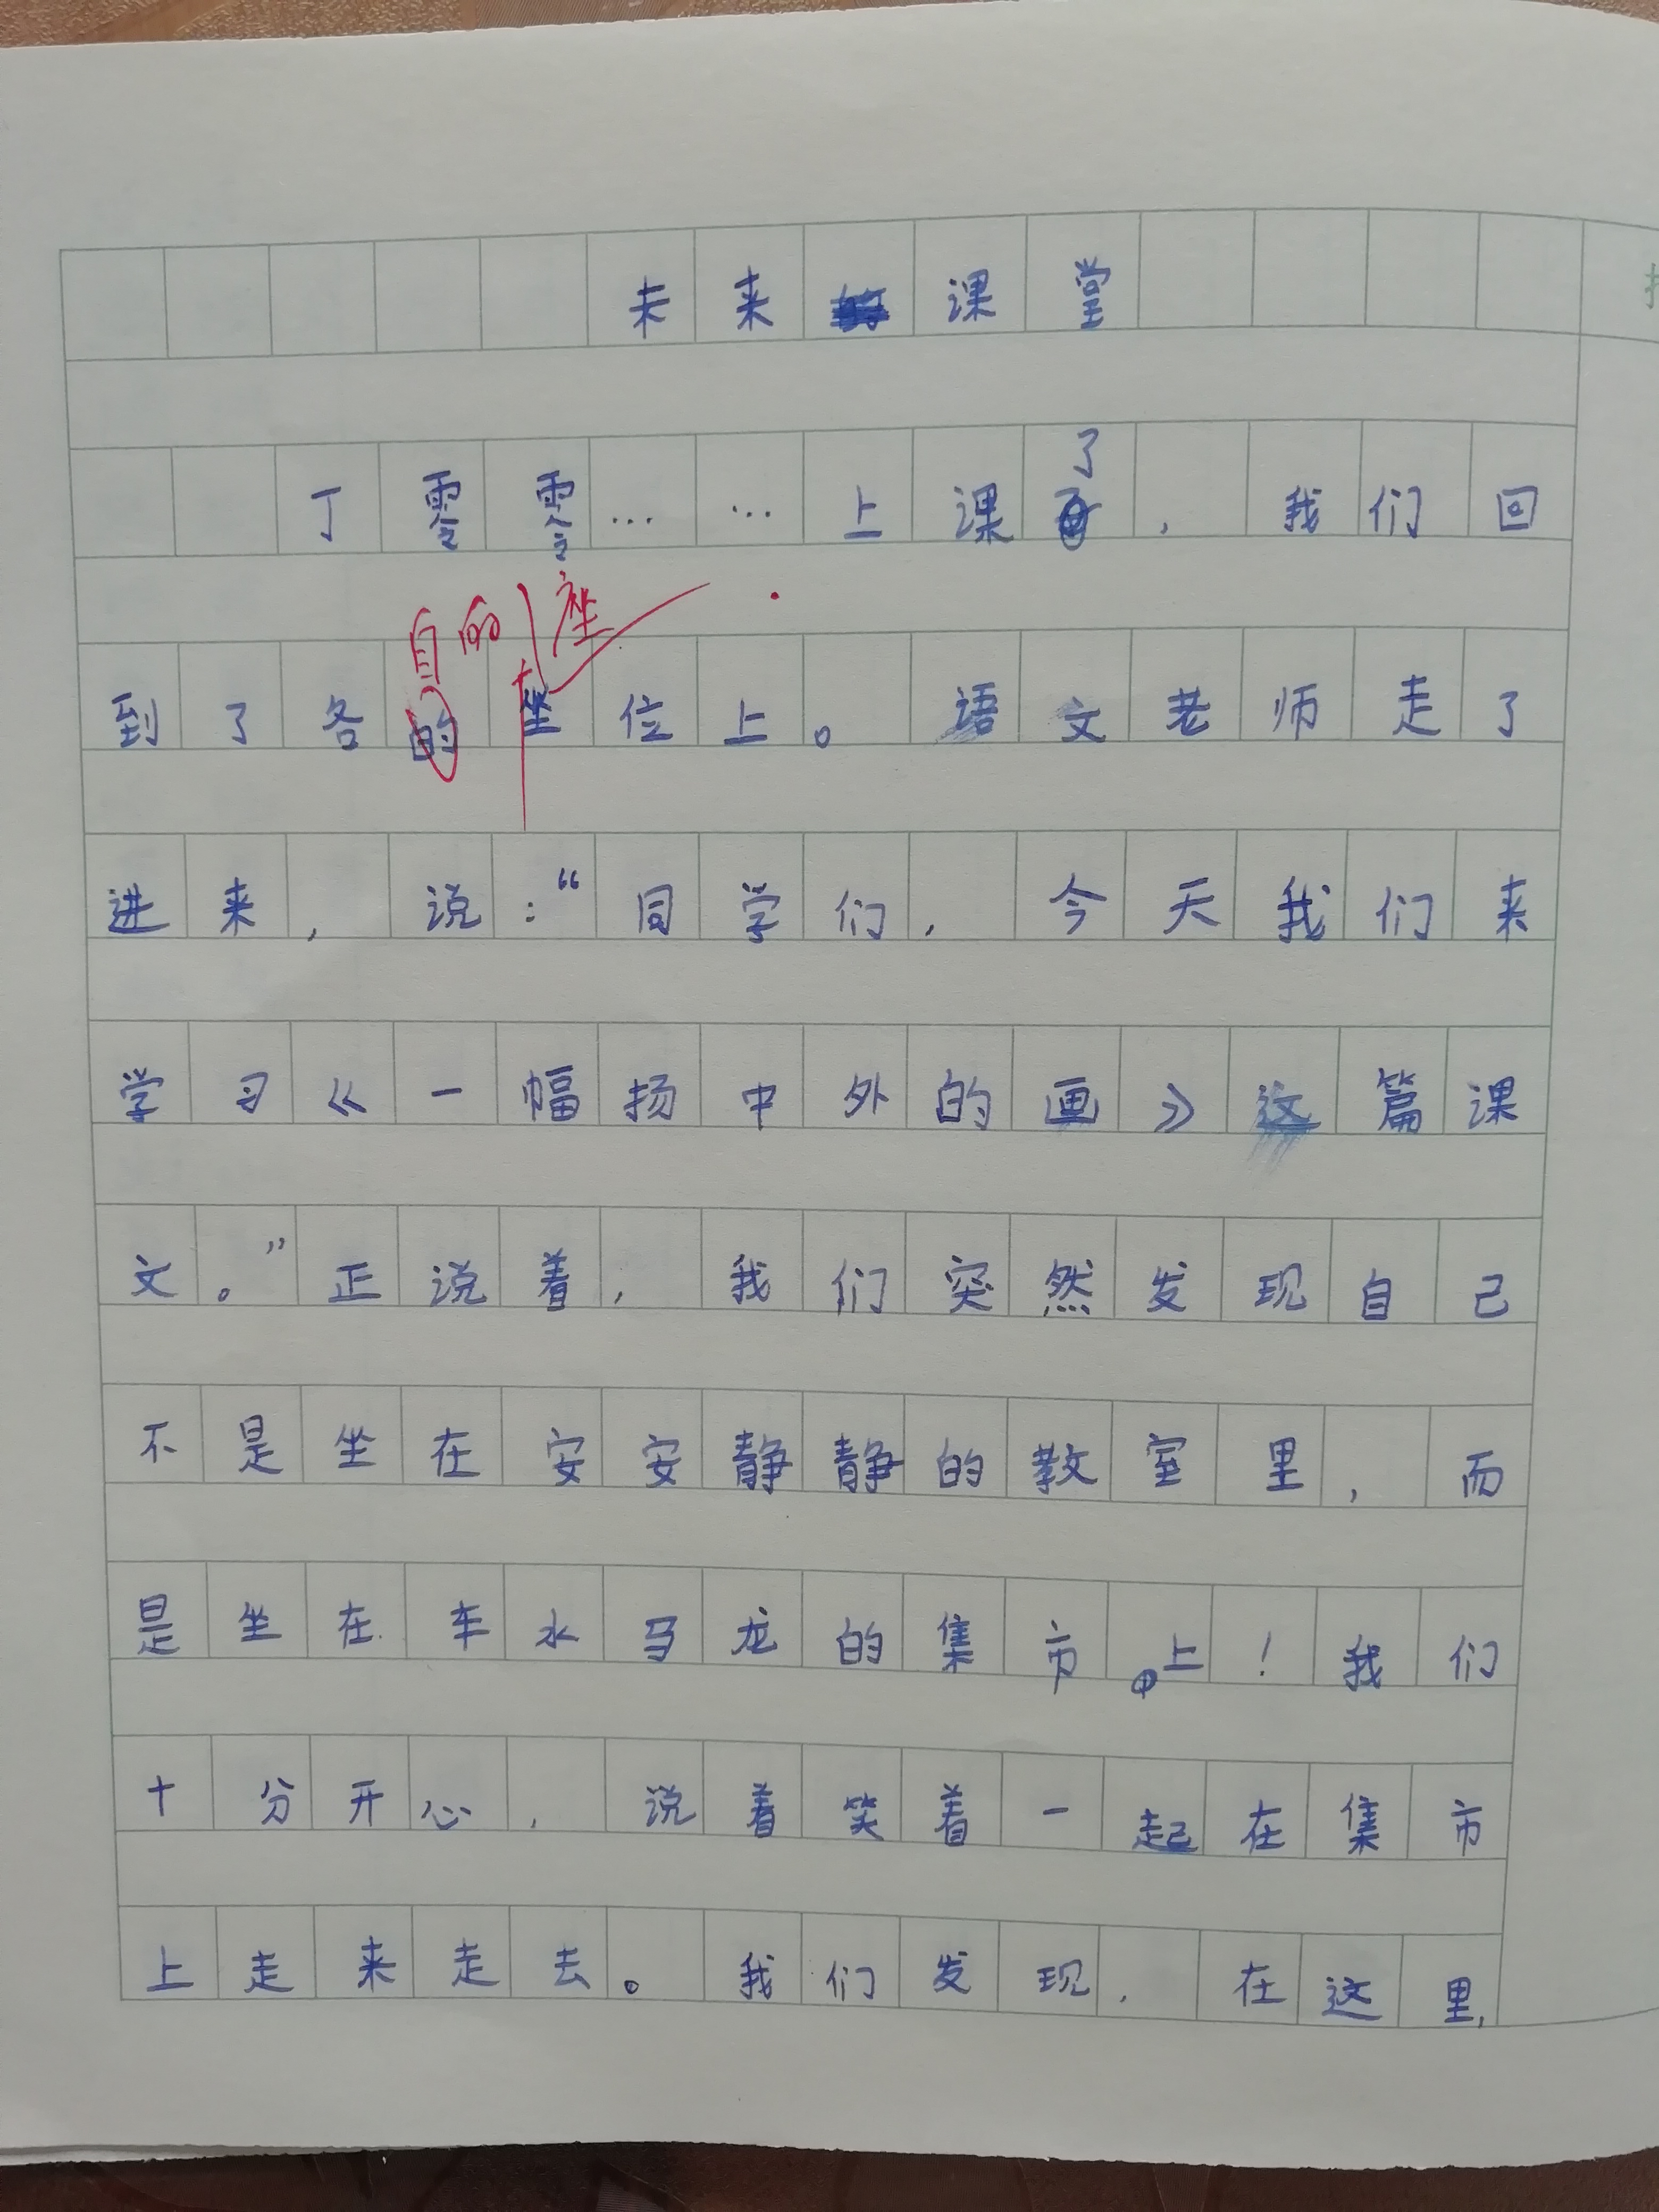 未来课堂
丁零零……上课了，我们回
自的座
到了各的坐位上。语文老师走了
进来，说：“同学们，今天我们来
学习《一幅扬中外的画》这篇课
文。”正说着，我们突然发现自己
不是坐在安安静静的教室里，而
是坐在车水马龙的集市上！我们
十分开心，说着笑着一起在集市
上走来走去。我们发现，在这里，